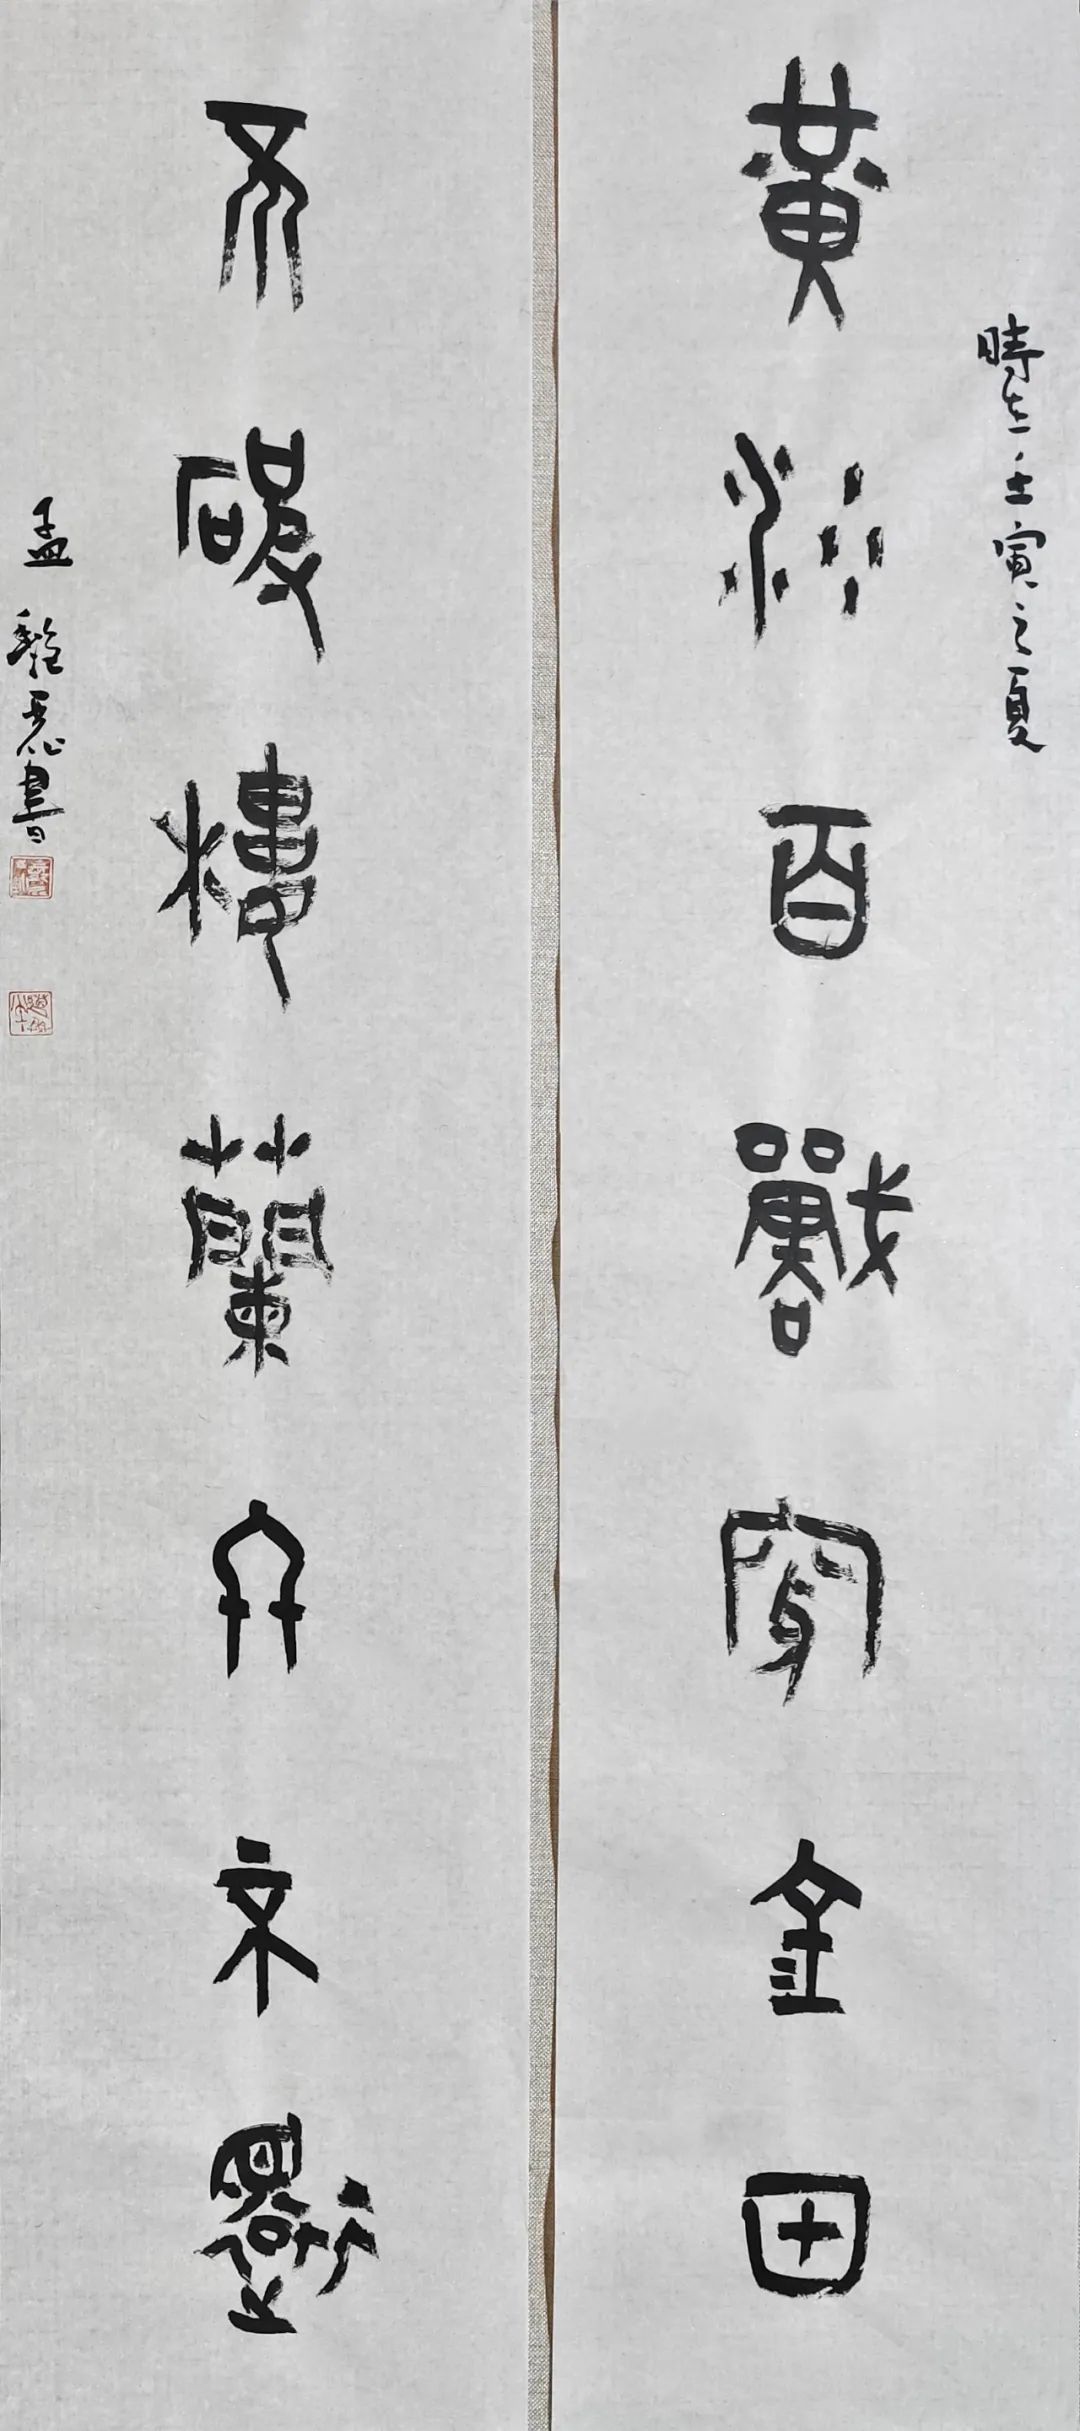 時在壬寅之夏
黃沙百戰穿金甲
不破樓蘭終不還
孟書